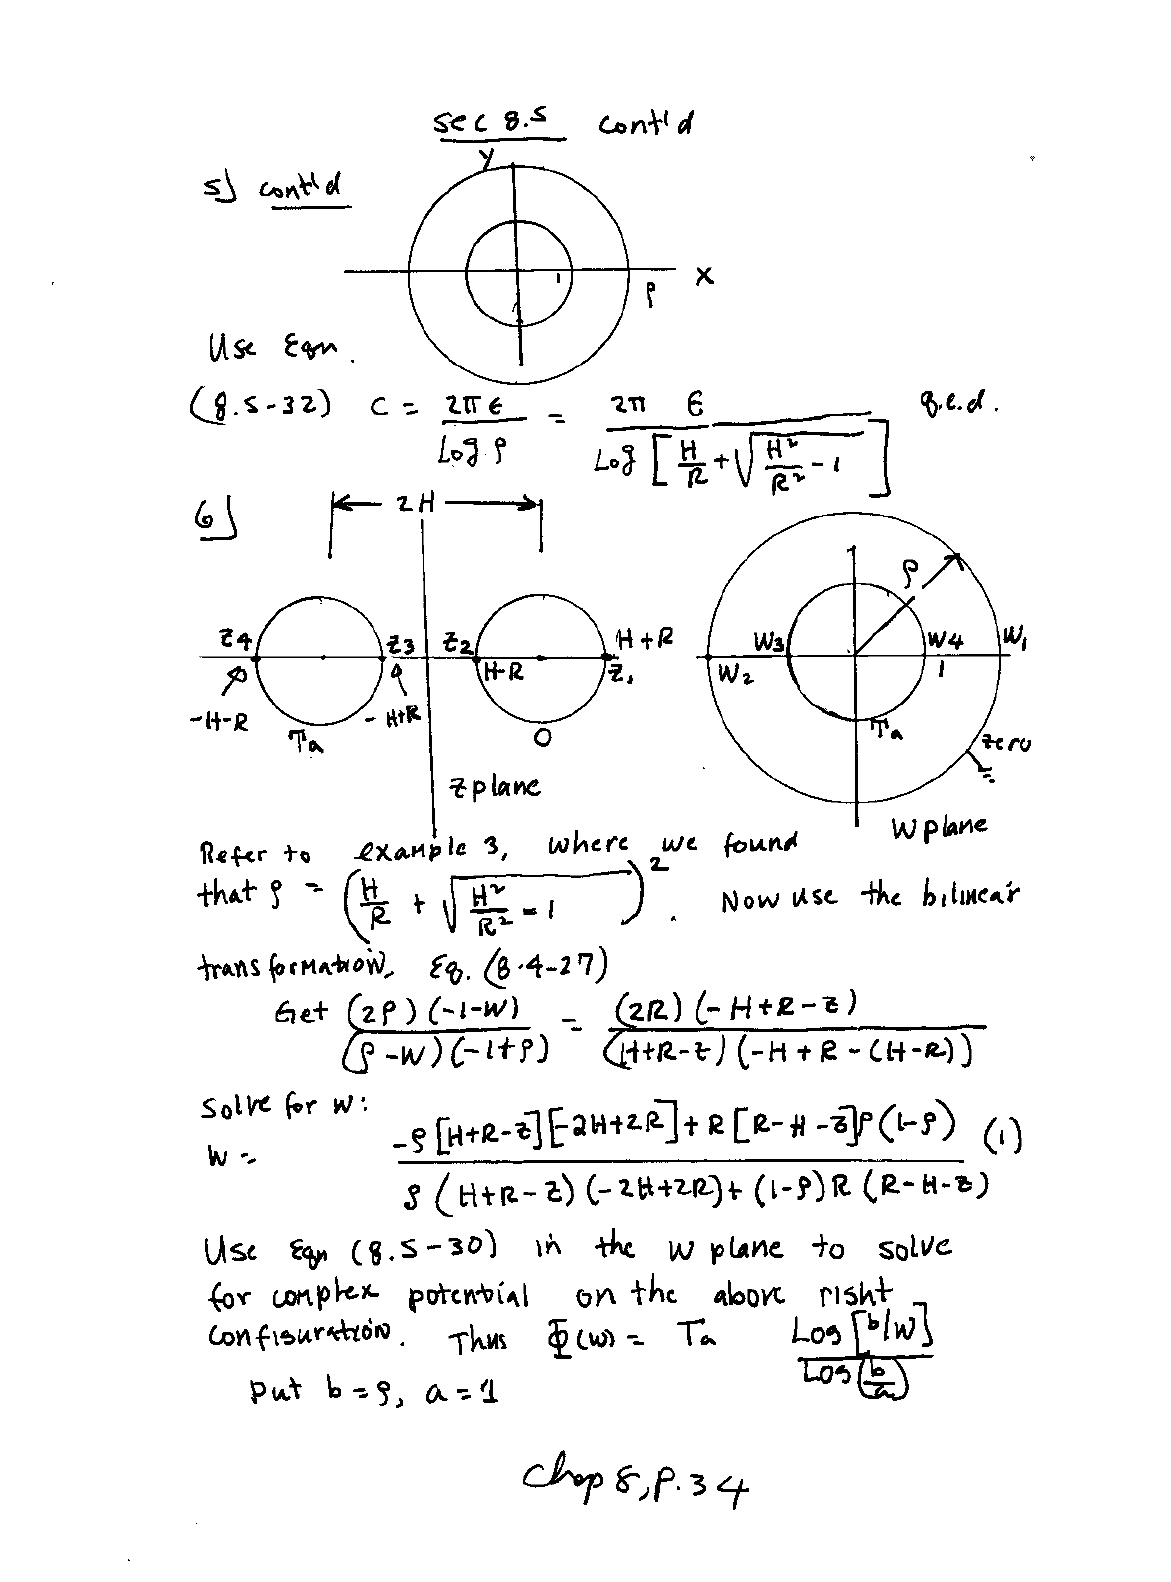 sec 8.5 cont'd
5) cont'd
y
x
1
ρ
Use Eqn.
(8.5-32) C = 2πε / Log ρ = 2π ε / Log [H/R + √(H²/R² - 1)] q.e.d.
6)
2H
z4 z3 z2 H+R
H-R z1
-H-R -H+R
Ta 0
z plane
ρ
W3 W4 W1
W2 1
Ta
zero
W plane
Refer to example 3, where we found
that ρ = (H/R + √(H²/R² - 1))². Now use the bilinear
transformation, Eq. (8.4-27)
Get (2ρ)(-1-w) / (ρ-w)(-1+ρ) = (2R)(-H+R-z) / (H+R-z)(-H+R-(H-R))
Solve for w:
w = -ρ[H+R-z][-2H+2R]+R[R-H-z]ρ(1-ρ) / ρ(H+R-z)(-2H+2R)+(1-ρ)R(R-H-z) (1)
Use Eqn (8.5-30) in the w plane to solve
for complex potential on the above right
configuration. Thus Φ(w) = Ta Log[b/w] / Log(b/a)
put b=ρ, a=1
Chap 8, P.34